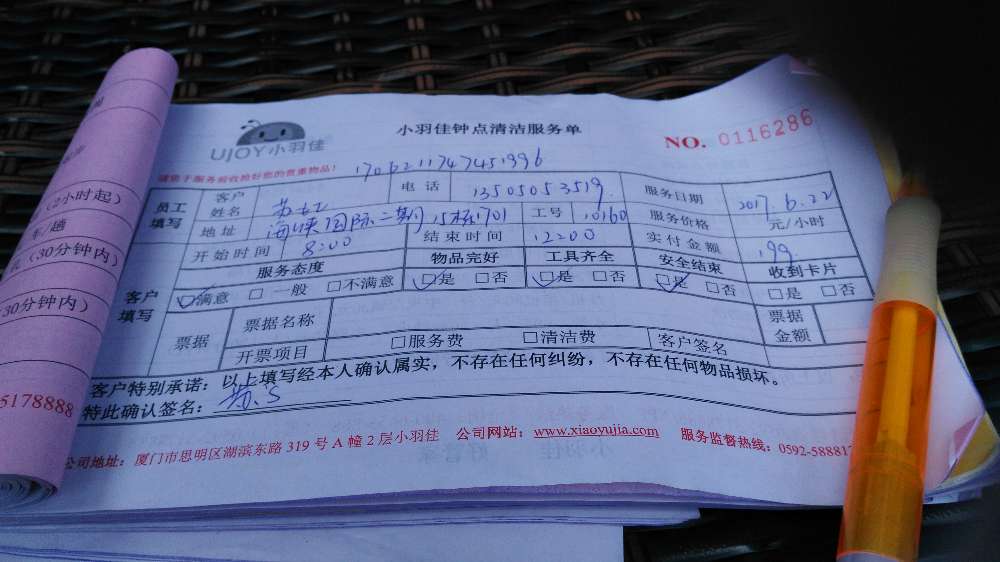 小羽佳钟点清洁服务单
UJOY小羽佳
NO. 0116286
请您于服务前收捡好您的贵重物品!
17062117474751996
员工填写 客户姓名 电话 13505053519 服务日期 2017.6.22
地址 海峡国际二期15栋1701 工号 10160 服务价格 元/小时
开始时间 8:00 结束时间 12:00 实付金额 199
客户填写 服务态度 物品完好 工具齐全 安全结束 收到卡片
☑满意 □一般 □不满意 ☑是 □否 ☑是 □否 ☑是 □否 □是 □否
票据 票据名称 票据金额
开票项目 □服务费 □清洁费 客户签名
客户特别承诺:以上填写经本人确认属实,不存在任何纠纷,不存在任何物品损坏。
特此确认签名:
公司地址:厦门市思明区湖滨东路 319 号 A 幢 2 层小羽佳 公司网站:www.xiaoyujia.com 服务监督热线:0592-58881
(2小时起)
车/趟
(30分钟内)
30分钟内)
5178888